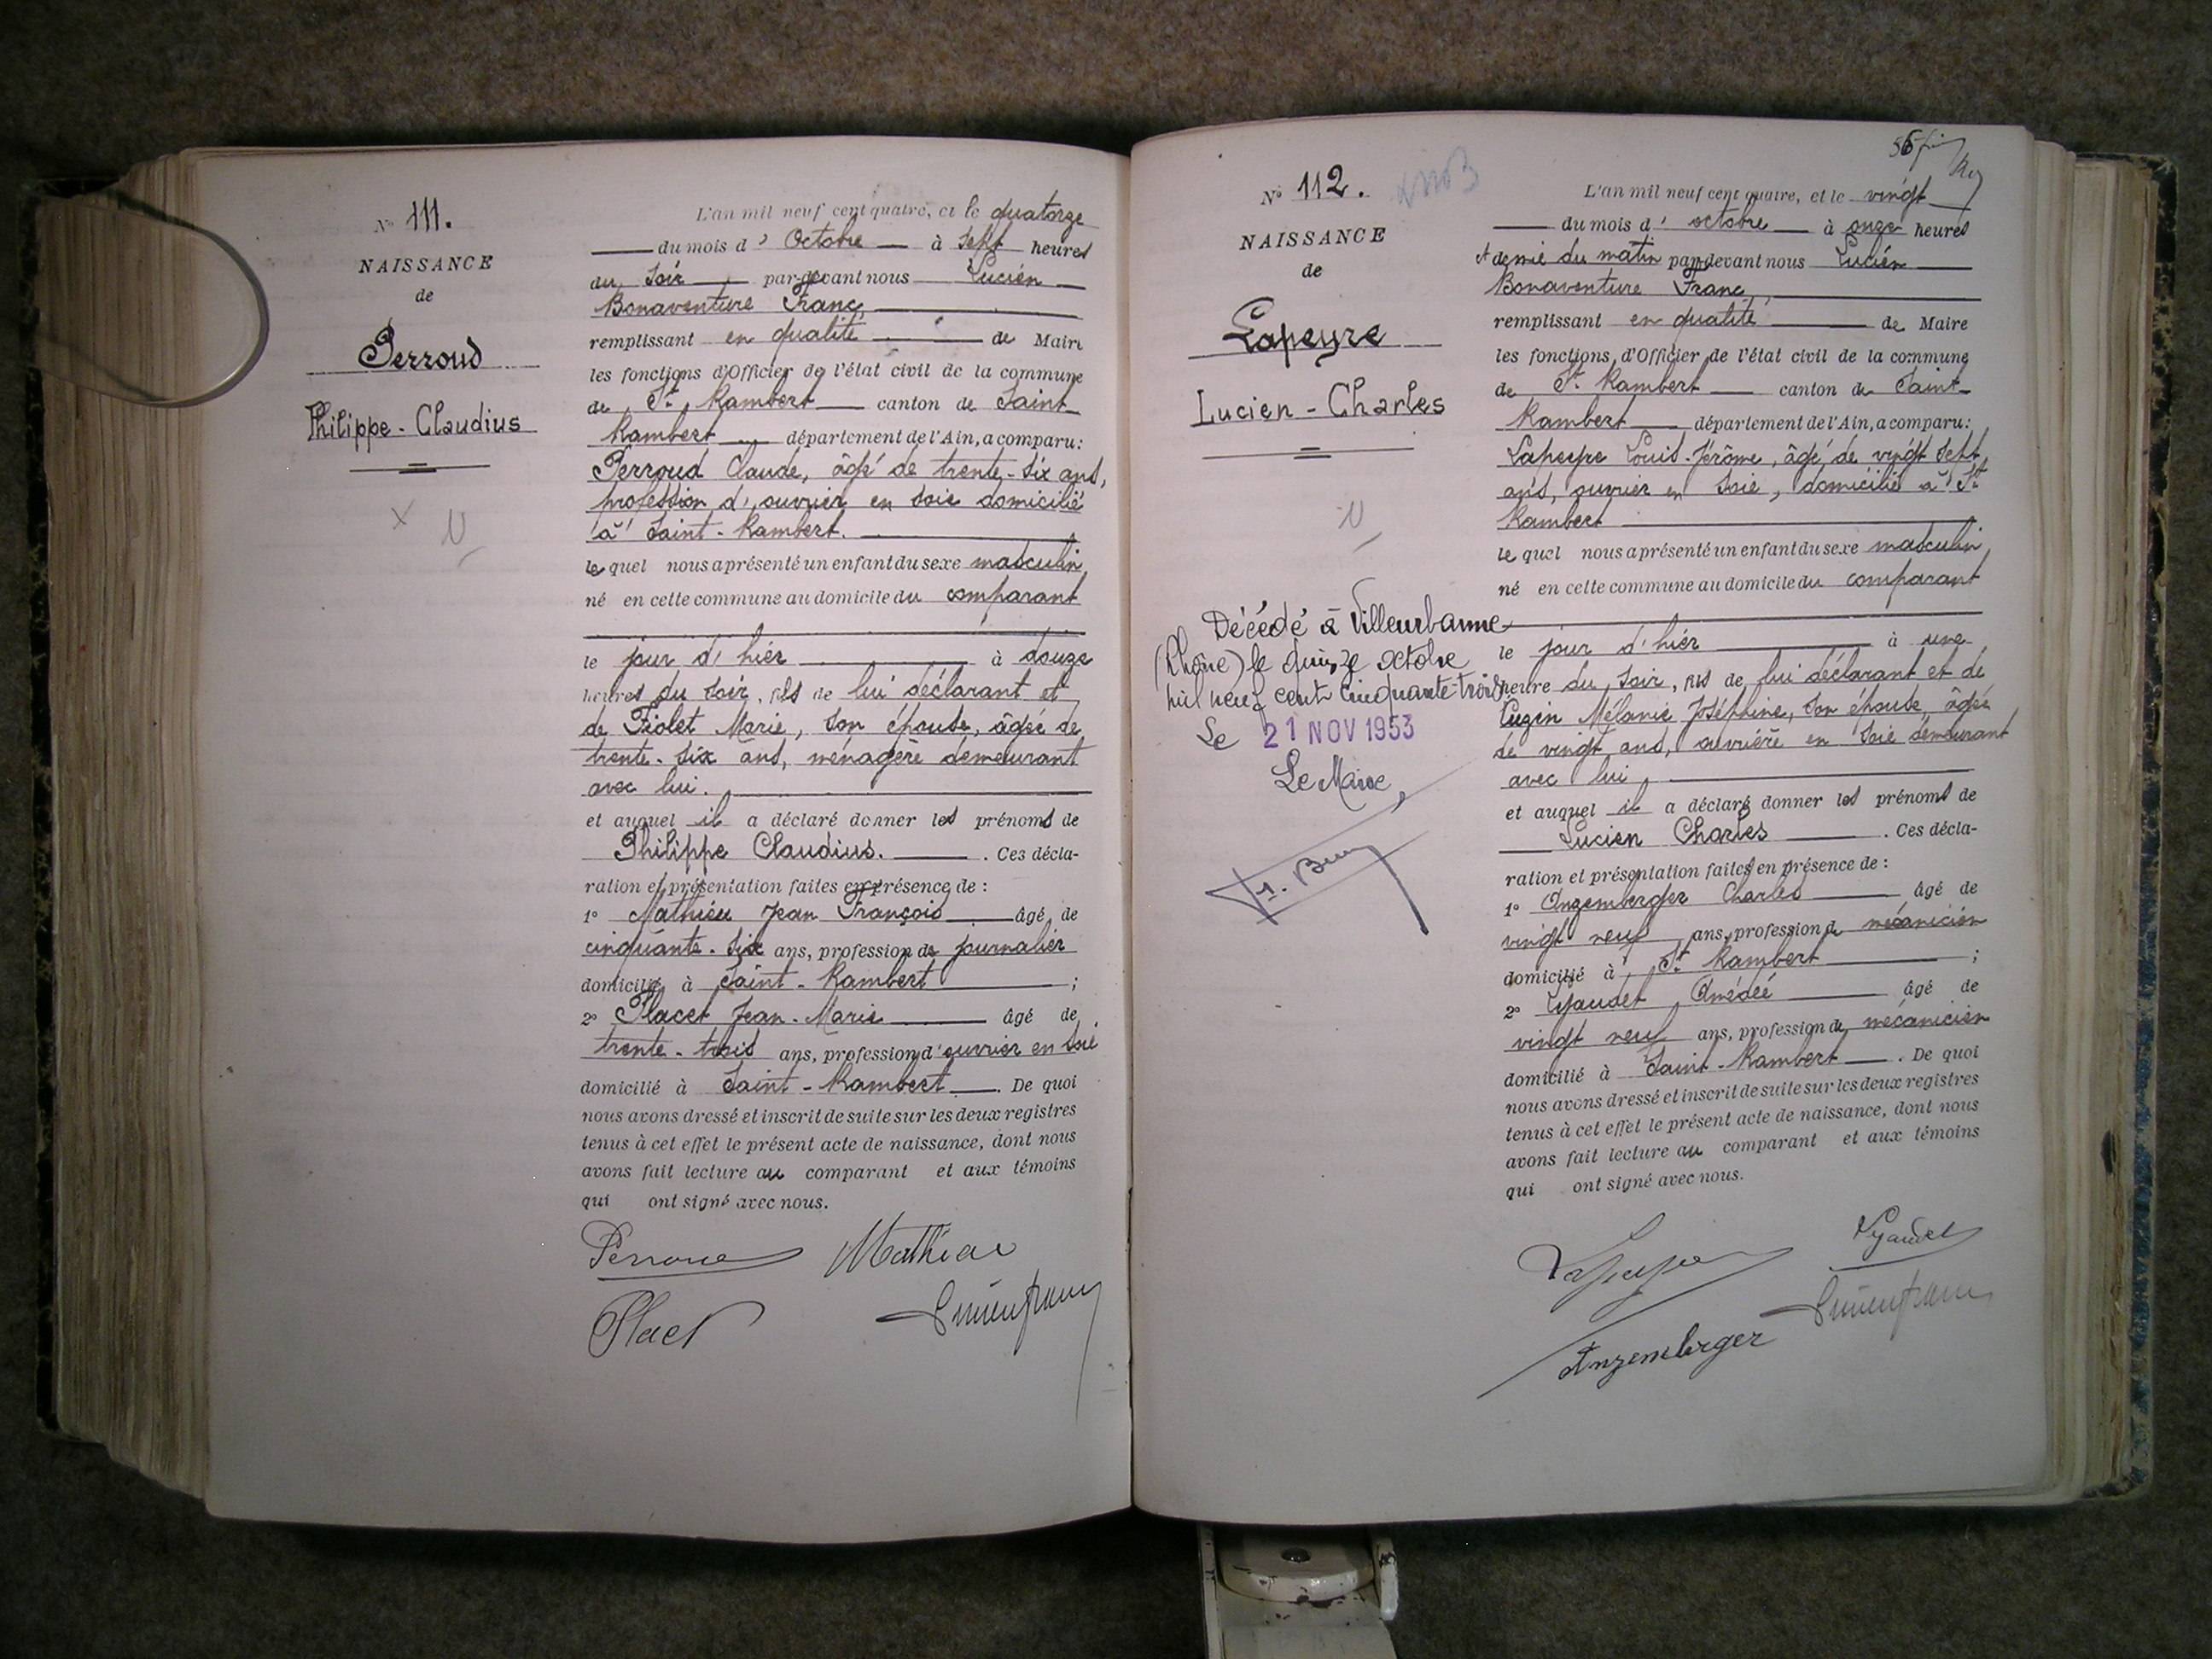 N° 111.
NAISSANCE
de
Perroud
Philippe - Claudius
L'an mil neuf cent quatre, et le quatorze
du mois d' Octobre à sept heures
du soir par-devant nous Lucien
Bonaventure Franc,
remplissant en qualité de Maire
les fonctions d'Officier de l'état civil de la commune
de St Rambert canton de Saint
Rambert département de l'Ain, a comparu:
Perroud Claude, âgé de trente-six ans,
profession d'ouvrier en soie domicilié
à Saint-Rambert.
lequel nous a présenté un enfant du sexe masculin,
né en cette commune au domicile du comparant
le jour d'hier à douze
heures du soir, fils de lui déclarant et
de Fiolet Marie, son épouse, âgée de
trente-six ans, ménagère demeurant
avec lui.
et auquel il a déclaré donner les prénoms de
Philippe Claudius. . Ces décla-
ration et présentation faites en présence de :
1° Mathieu Jean François âgé de
cinquante-six ans, profession de journalier
domicilié à Saint-Rambert ;
2° Placet Jean-Marie âgé de
trente-trois ans, profession d'ouvrier en soie
domicilié à Saint-Rambert . De quoi
nous avons dressé et inscrit de suite sur les deux registres
tenus à cet effet le présent acte de naissance, dont nous
avons fait lecture au comparant et aux témoins
qui ont signé avec nous.
Perroud Mathieu
Placet Lucien Franc
N° 112.
NAISSANCE
de
Lapeyre
Lucien - Charles
Décédé à Villeurbanne
(Rhône) le quinze octobre
mil neuf cent cinquante-trois
Le 21 NOV 1953
Le Maire
56
L'an mil neuf cent quatre, et le vingt
du mois d' octobre à onze heures
et demie du matin par-devant nous Lucien
Bonaventure Franc
remplissant en qualité de Maire
les fonctions d'Officier de l'état civil de la commune
de St Rambert canton de Saint
Rambert département de l'Ain, a comparu:
Lapeyre Louis-Jérôme, âgé de vingt sept
ans, ouvrier en soie, domicilié à St
Rambert
lequel nous a présenté un enfant du sexe masculin,
né en cette commune au domicile du comparant
le jour d'hier à une
heure du soir, fils de lui déclarant et de
Cuzin Mélanie Joséphine, son épouse, âgée
de vingt ans, ouvrière en soie demeurant
avec lui
et auquel il a déclaré donner les prénoms de
Lucien Charles . Ces décla-
ration et présentation faites en présence de :
1° Anzemberger Charles âgé de
vingt neuf ans, profession de mécanicien
domicilié à St Rambert ;
2° Gaudet Amédée âgé de
vingt neuf ans, profession de mécanicien
domicilié à Saint-Rambert . De quoi
nous avons dressé et inscrit de suite sur les deux registres
tenus à cet effet le présent acte de naissance, dont nous
avons fait lecture au comparant et aux témoins
qui ont signé avec nous.
Lapeyre Gaudet
Anzemberger Lucien Franc